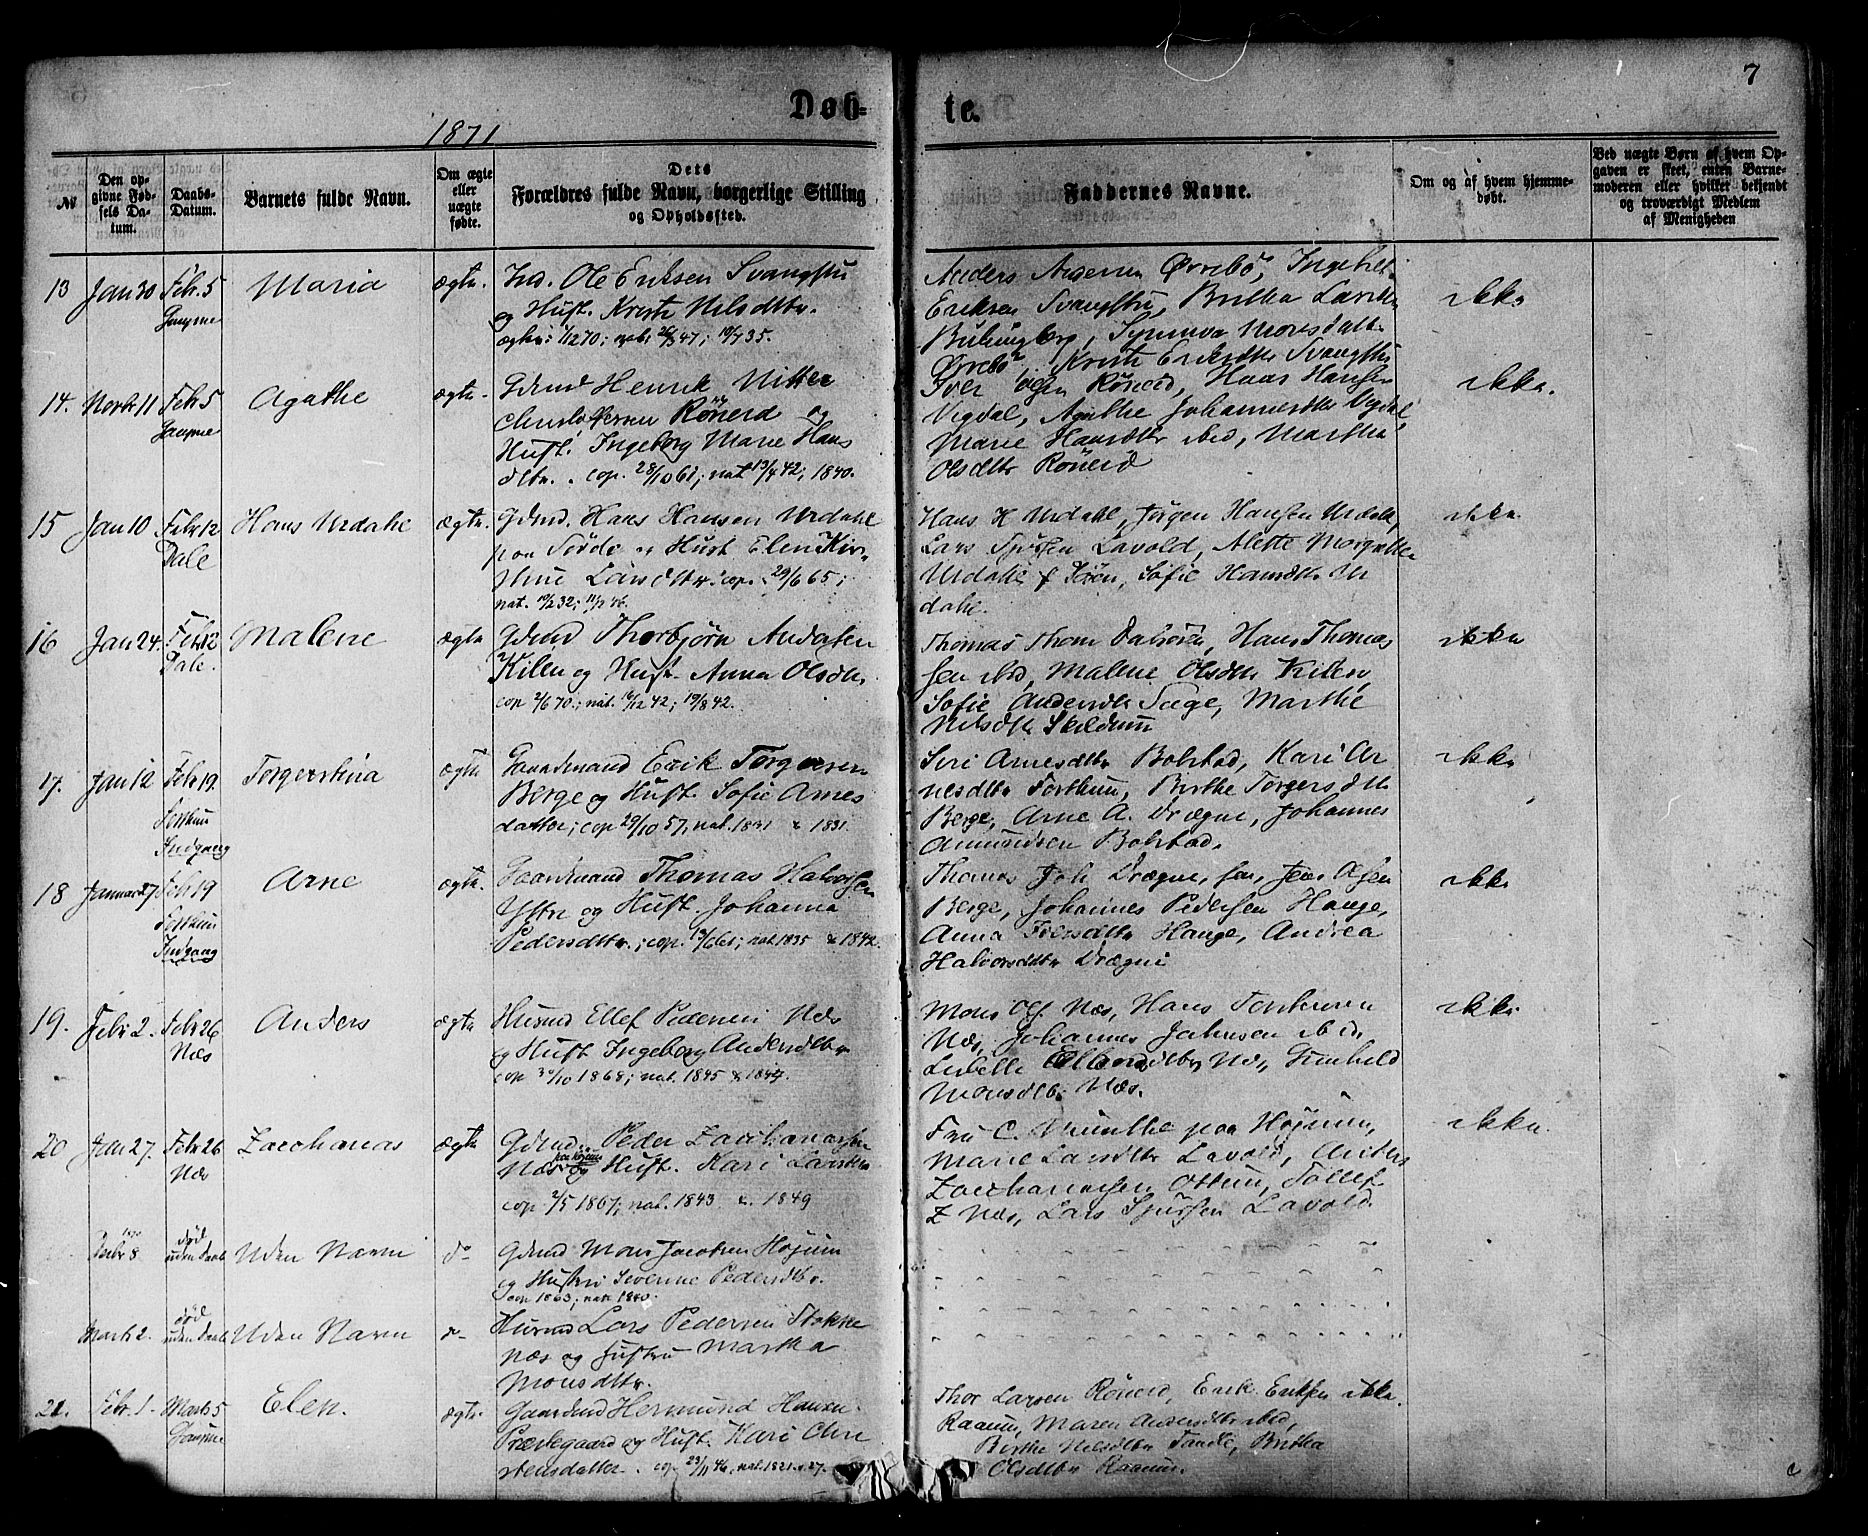 7
Døb-
te.
1871
No
Den op-
givne Fød-
sels Da-
tum.
Daabs-
Datum.
Barnets fulde Navn.
Om ægte
eller
uægte
fødte.
Dets
Forældres fulde Navn, borgerlige Stilling
og Opholdssted.
Faddernes Navne.
Om og af hvem hjemme-
døbt.
Ved uægte Børn af hvem Op-
gaven er skeet, enten Barne-
moderen eller hvilket bekjendt
og troværdigt Medlem
af Menigheden
13 Jan 30 Febr. 5 Maria ægte. Ind. Ole Eriksen
Gaupne og Hust. Kirsti Nilsdtr.
Anders Ørrebö, Ingebr.
Eriksen Britha
Synneva Monsdatt.
Ørrebö Kirsti Eriksdtr
ikke
14. Novbr 11 Febr 5 Agathe ægte. Gdmd Henrik Mitter
Gaupne Röneid og
Hust. Ingeborg Marie Hans
dtr. cop. 28/10 61; nat 13/4 42; 1840.
Iver Röneid, Hans Hansen
Vigdal, Agathe Johannesdtr Vigdal,
Marie Hansdtr ibid, Martha
Olsdtr Röneid
ikke.
15 Jan 10 Febr 12 Hans Urdahl ægte. Gdmd. Hans Hansen Urdahl
Dale paa og Hust Elen Kir-
stine Larsdtr. cop. 29/6 65;
nat. 19/2 32; 11/12 46.
Hans H Urdahl, Jørgen Hansen Urdahl,
Lars Sjursen Lavold, Alette
Urdahl Sofie Hansdtr Ur
dahl.
ikke
16 Jan 24. Febr 12 Malene ægte Gdmd Thorbjörn Andersen
Dale. Killen og Hust. Anna Olsdtr.
cop 2/6 70.; nat. 16/12 42; 19/8 42.
Thomas Thom Dalsören, Hans Thomas
sen ibid, Malene Olsdtr Killen,
Sofie Andersdtr Marthe
Nilsdtr Skildum
ikke
17. Jan 12 Febr 19. Torgerstina ægte Gaardmand Erik Torgersen
Forthun Berge og Hust. Sofie Arnes
Indgang datter; cop 29/10 57, nat. 1831 & 1831.
Siri Arnesdtr Bolstad, Kari Ar
nesdtr Forthun, Birthe Torgersdtr
Berge, Arne A. Drægne, Johannes
Amundsen Bolstad.
ikke
18 Januar 7 Febr 19 Arne ægte. Gaardmand Thomas Halvorsen
Forthun Yttri og Hust. Johanna
Indgang Pedersdtr.; cop. nat 1835 & 1842.
Thomas Joh Drægne, Jens Olsen
Berge, Johannes Pedersen Hauge,
Anna Iversdtr Hauge, Andrea
Halvorsdtr Drægni
ikke
19. Febr 2. Febr 26 Anders ægte Husmd Ellef Pedersen Næs
Næs og Hust Ingeborg Andersdtr
cop 30/10 1868; nat. 1845 & 1849.
Mons Ols Næs, Hans
Næs, Johannes Johnsen ibid,
Næs, Gunhild
Monsdtr Næs.
ikke
20 Jan 27. Febr 26 Zacchanas ægte Gdmd Peder Zacchanassen
Næs Næs og Hust. Kari Larsdtr
cop 2/5 1867; nat. 1843 & 1849
Fru C. Munthe paa Højum,
Marie Larsdtr Lavold, Anders
Zacchanassen Ottum, Tollef
Z Næs, Lars Sjursen Lavold.
ikke.
1870
Decbr 8. død
uden Daab Uden Navn do Gdmd Mons Jacobsen Højum
og Hustru Severine Pedersdtr.
cop 1863; nat. 1840.
Marts 2. død
uden Daab Uden Navn do Husmd Lars Pedersen Stokke
næs og Hustru Martha
Monsdtr.
21. Febr. 1 Marts 5 Elen. ægte. Gaardmd Hermund Hansen
Gaupne Præstegaard og Hust. Kari Chri
stensdatter. cop 23/11 46, nat. 1821. & 27.
Thor Larsen Röneid, Erik Eriksen ikke.
Raaum, Maren Andersdtr ibid,
Birthe Nilsdtr Tandle, Britha
Olsdtr Raaum.